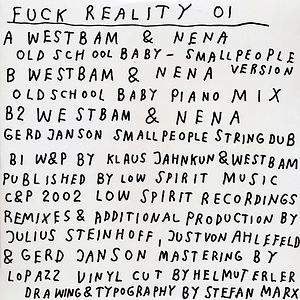 FUCK REALITY 01
A WESTBAM & NENA
OLD SCHOOL BABY - SMALLPEOPLE VERSION
B WESTBAM & NENA
OLDSCHOOL BABY PIANO MIX
B2 WESTBAM & NENA
GERD JANSON SMALLPEOPLE STRING DUB
B1 W&P BY KLAUS JAHNKUN & WESTBAM
PUBLISHED BY LOW SPIRIT MUSIC
C&P 2002 LOW SPIRIT RECORDINGS
REMIXES & ADDITIONAL PRODUCTION BY
JULIUS STEINHOFF, JUST VON AHLEFELD
& GERD JANSON MASTERING BY
LOPAZZ VINYL CUT BY HELMUT ERLER
DRAWING & TYPOGRAPHY BY STEFAN MARX